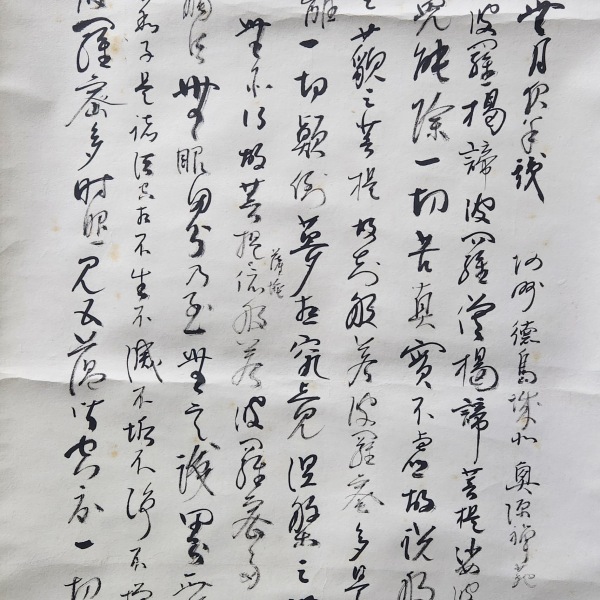 波羅蜜多時照見五蘊皆空度一切
利子是諸法空相不生不滅不垢不淨不增
觸法無眼界乃至無意識界無
無所得故菩提薩埵依般若波羅蜜多
離一切顛倒夢想究竟涅槃三
藐三菩提故知般若波羅蜜多是
咒能除一切苦真實不虛故說般
波羅揭諦波羅僧揭諦菩提娑婆
月 阿州德島城北 奥源禅苑